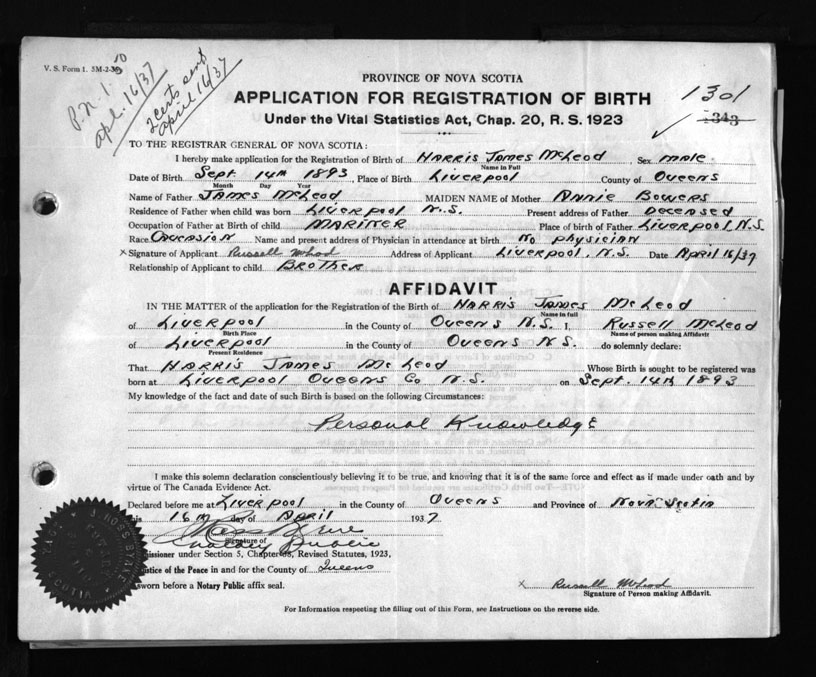 V. S. Form 1. 5M-2-
P.N. 1.50
apl. 16/37
2 certs sent
april 16/37
PROVINCE OF NOVA SCOTIA
APPLICATION FOR REGISTRATION OF BIRTH
1301
Under the Vital Statistics Act, Chap. 20, R. S. 1923
343
TO THE REGISTRAR GENERAL OF NOVA SCOTIA:
I hereby make application for the Registration of Birth of HARRIS JAMES McLeod, Sex male.
Name in Full
Date of Birth Sept 14th 1893, Place of Birth Liverpool County of Queens
Month Day Year
Name of Father JAMES McLeod MAIDEN NAME of Mother ANNIE Bowers
Residence of Father when child was born Liverpool N.S. Present address of Father Deceased
Occupation of Father at Birth of child MARINER Place of birth of Father Liverpool, N.S.
Race Caucasion Name and present address of Physician in attendance at birth No physician
x Signature of Applicant Russell McLeod Address of Applicant Liverpool, N.S. Date April 16/37
Relationship of Applicant to child BROTHER
AFFIDAVIT
IN THE MATTER of the application for the Registration of the Birth of HARRIS JAMES McLeod
Name in full
of Liverpool in the County of Queens N.S. I, Russell McLeod
Birth Place Name of person making Affidavit
of Liverpool in the County of Queens N.S. do solemnly declare:
Present Residence
That HARRIS JAMES McLeod Whose Birth is sought to be registered was
born at Liverpool Queens Co N.S. on Sept. 14th 1893
My knowledge of the fact and date of such Birth is based on the following Circumstances:
Personal Knowledge
I make this solemn declaration conscientiously believing it to be true, and knowing that it is of the same force and effect as if made under oath and by
virtue of The Canada Evidence Act.
Declared before me at Liverpool in the County of Queens and Province of Nova Scotia
this 16th day of April 1937
Signature of
Notary Public
issioner under Section 5, Chapter 38, Revised Statutes, 1923,
stice of the Peace in and for the County of Queens
sworn before a Notary Public affix seal.
x Russell McLeod
Signature of Person making Affidavit.
For Information respecting the filling out of this Form, see Instructions on the reverse side.